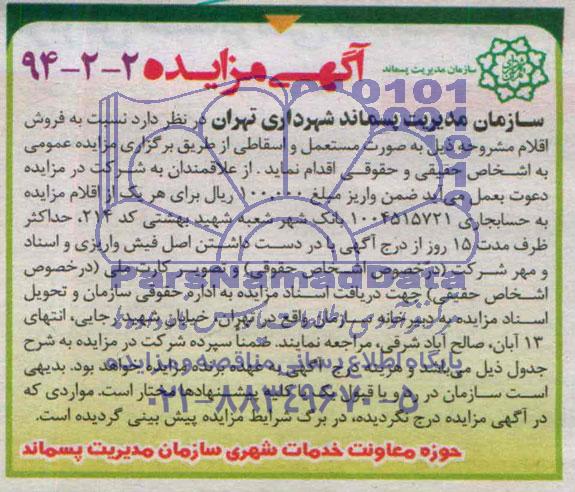 سازمان مدیریت پسماند
آگهی مزایده ۲-۲-۹۴
سازمان مدیریت پسماند شهرداری تهران در نظر دارد نسبت به فروش
اقلام مشروحه ذیل به صورت مستعمل و اسقاطی از طریق برگزاری مزایده عمومی
به اشخاص حقیقی و حقوقی اقدام نماید. از علاقمندان به شرکت در مزایده
دعوت بعمل می‌آید ضمن واریز مبلغ ۱۰۰،۰۰۰ ریال برای هر یک از اقلام مزایده
به حسابجاری ۱۰۰۴۵۱۵۷۲۱ بانک شهر شعبه شهید بهشتی کد ۲۱۴، حداکثر
ظرف مدت ۱۵ روز از درج آگهی با در دست داشتن اصل فیش واریزی و اسناد
و مهر شرکت (درخصوص اشخاص حقوقی) و تصویر کارت ملی (درخصوص
اشخاص حقیقی) جهت دریافت اسناد مزایده به اداره حقوقی سازمان و تحویل
اسناد مزایده به دبیرخانه سازمان واقع در تهران، خیابان شهید رجایی، انتهای
۱۳ آبان، صالح آباد شرقی، مراجعه نمایند. ضمنا سپرده شرکت در مزایده به شرح
جدول ذیل می‌باشد و هزینه درج آگهی به عهده برنده مزایده خواهد بود. بدیهی
است سازمان در رد و یا قبول یک یا کلیه پیشنهادها مختار است. مواردی که
در آگهی مزایده درج نگردیده، در برگ شرایط مزایده پیش بینی گردیده است.
حوزه معاونت خدمات شهری سازمان مدیریت پسماند
ParsNamadData
پایگاه اطلاع رسانی مناقصه و مزایده
۰۲۱-۸۸۳۴۹۶۷۰-۵